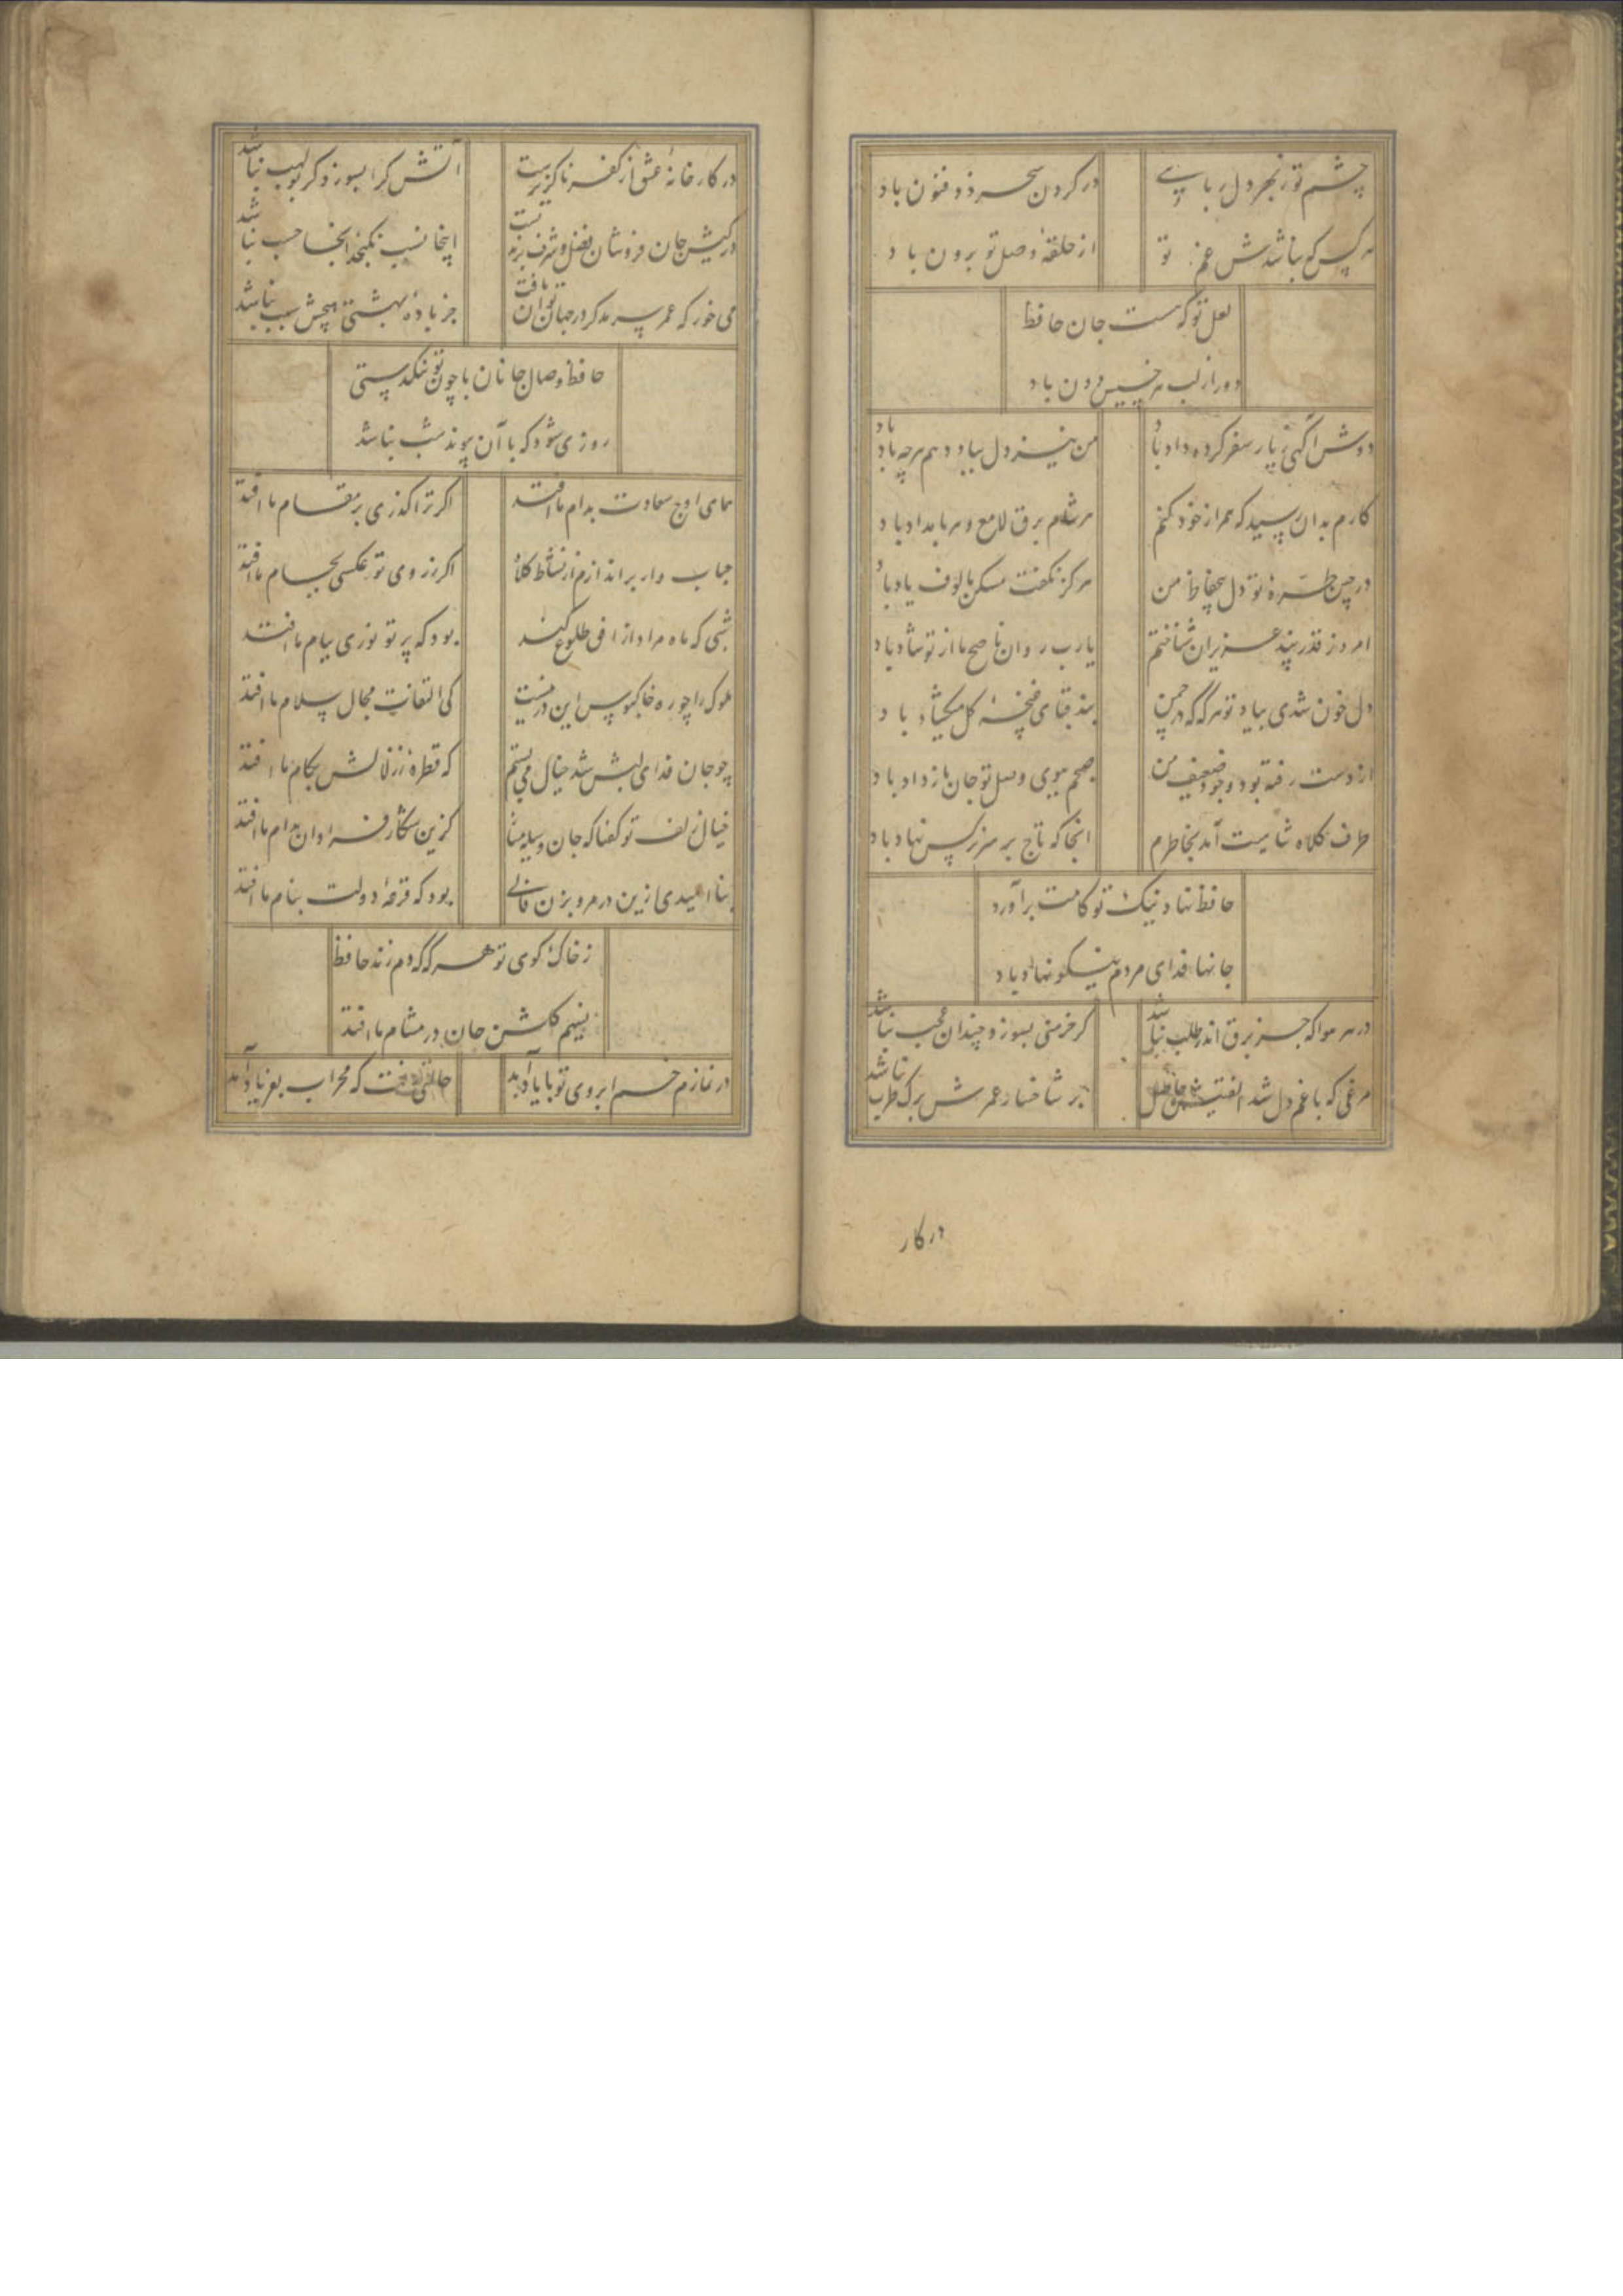 چشم تو زبهر دل ربایی در کردن سحر ذوفنون باد
هر کس که نباشدش غم تو از حلقهٔ وصل تو برون باد
لعل تو که هست جان حافظ
دور از لب هر خسیس دون باد
دوش آگهی ز یار سفر کرده داد باد من نیز دل بباد دهم هرچه باد باد
کارم بدان رسید که همراز خود کنم هر شام برق لامع و هر بامداد باد
در چین طرهٔ تو دل بیحفاظ من هرگز نگفت مسکن مالوف یاد باد
امروز قدر پند عزیزان شناختم یارب روان ناصح ما از تو شاد باد
دل خون شدی بیاد تو هرگه که در چمن بند قبای غنچهٔ گل میگشاد باد
از دست رفته بود وجود ضعیف من صبحم ببوی وصل تو جان باز داد باد
طرف کلاه شاهیت آمد بخاطرم آنجا که تاج بر سر نرگس نهاد باد
حافظ نهاد نیک تو کامت برآورد
جانها فدای مردم نیکو نهاد باد
در هر هوا که جز برق اندر طلب نباشد گر خرمنی بسوزد چندان عجب نباشد
مرغی که با غم دل شد الفتیش حاصل بر شاخسار عمرش برگ طرب نباشد
در کار
در کارخانهٔ عشق از کفر ناگزیرست آتش کرا بسوزد گر بولهب نباشد
در کیش جان فروشان فضل و شرف برندیست اینجا نسب نگنجد آنجا حسب نباشد
می خور که عمر سرمد گر در جهان توان یافت جز بادهٔ بهشتی هیچش سبب نباشد
حافظ وصال جانان با چون تو تنگدستی
روزی شود که با آن پیوند شب نباشد
همای اوج سعادت بدام ما افتد اگر ترا گذری بر مقام ما افتد
حباب وار براندازم از نشاط کلاه اگر ز روی تو عکسی بجام ما افتد
شبی که ماه مراد از افق طلوع کند بود که پرتو نوری ببام ما افتد
ملوک را چو ره خاکبوس این در نیست کی التفات مجال سلام ما افتد
چو جان فدای لبش شد خیال می بستم که قطرهٔ ز زلالش بکام ما افتد
خیال زلف تو گفتا که جان وسیله مساز کزین شکار فراوان بدام ما افتد
بنا امیدی ازین در مرو بزن فالی بود که قرعهٔ دولت بنام ما افتد
ز خاک کوی تو هرگه که دم زند حافظ
نسیم گلشن جان در مشام ما افتد
در نمازم خم ابروی تو با یاد آمد حالتی رفت که محراب بفریاد آمد